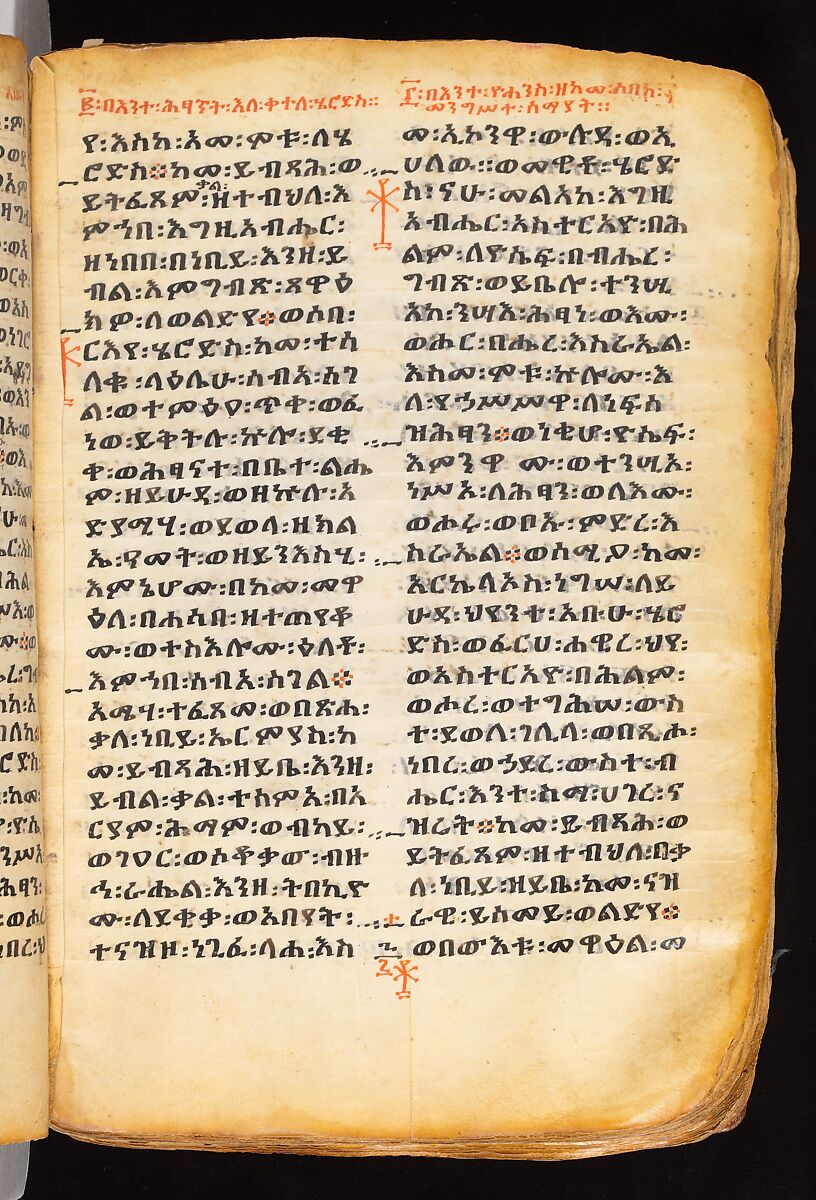 ፪፡በእንተ፡ሕፃናት፡እለ፡ቀተለ፡ሄሮድስ።
የ፡እስከ፡አመ፡ሞቱ፡ለሄ
ሮድስ፨ከመ፡ይብጻሕ፡ወ
ቃል፡
ይትፈጸም፡ዘተብህለ፡እ
ምኀበ፡እግዚአብሔር፡
ዘነበበ፡በነቢይ፡እንዘ፡ይ
ብል፡እምግብጽ፡ጸዋዕ
ክዎ፡ለወልድየ፨ወሶበ፡
ርእየ፡ሄሮድስ፡ከመ፡ተሳ
ለቁ፡ላዕሌሁ፡ሰብአ፡ሰገ
ል፡ወተምዕዐ፡ጥቀ፡ወፈ
ነወ፡ይቅትሉ፡ኵሎ፡ደቂ
ቀ፡ወሕፃናተ፡በቤተ፡ልሔ
ም፡ዘይሁዳ፡ወዘኵሉ፡አ
ድያሚሃ፡ወደወላ፡ዘክል
ኤ፡ዓመት፡ወዘይንእስሂ፡
እምኔሆሙ፡በከመ፡መዋ
ዕለ፡በሐሳበ፡ዘተጠየቆ
ሙ፡ወተስእሎሙ፡ዕለቶ፡
እምኀበ፡ሰብአ፡ሰገል፨
አሜሃ፡ተፈጸመ፡ወበጽሐ፡
ቃለ፡ነቢይ፡ኤርምያስ፡ከ
መ፡ይብጻሕ፡ዘይቤ፡እንዘ፡
ይብል፡ቃል፡ተሰምአ፡በአ
ርያም፡ሕማም፡ወብካይ፡
ወገዐር፡ወሰቆቃው፡ብዙ
ኅ፡ራሔል፡እንዘ፡ትበኪዮ
ሙ፡ለደቂቃ፡ወአበየት፡
ተናዝዞ፡ነጊፈ፡ላሐ፡እስ
፫፡በእንተ፡ዮሐንስ፡ዘከመ፡ሰበከ፡
መንግሥተ፡ሰማያት።
መ፡ኢኮንዋ፡ውሉዳ፡ወኢ
ሀለው።ወመዊቶ፡ሄሮድ
ስ፡ናሁ፡መልአከ፡እግዚ
አብሔር፡አስተርአዮ፡በሕ
ልም፡ለዮሴፍ፡በብሔረ፡
ግብጽ፡ወይቤሎ፡ተንሢ
አከ፡ንሣእ፡ሕፃነ፡ወእሙ፡
ወሑር፡በሔረ፡እስራኤል፡
እስመ፡ሞቱ፡ኵሎሙ፡እ
ለ፡የኃሥሥዋ፡ለነፍሰ
ዝሕፃን፨ወነቂሆ፡ዮሴፍ፡
እምንዋ ሙ፡ወተንሢአ፡
ነሥአ፡ለሕፃን፡ወለእሙ፡
ወሖሩ፡ወቦኡ፡ምድረ፡እ
ስራኤል፨ወሰሚዖ፡ከመ፡
አርኬላኦስ፡ነግሠ፡ለይ
ሁዳ፡ህየንተ፡አቡሁ፡ሄሮ
ድስ፡ወፈርሀ፡ሐዊረ፡ህየ፡
ወአስተርአዮ፡በሕልም፡
ወሖረ፡ወተግሕሠ፡ውስ
ተ፡ደወለ፡ገሊላ፡ወበጺሖ፡
ነበረ፡ወኃደረ፡ውስተ፡ብ
ሔር፡እንተ፡ስማ፡ሀገረ፡ና
ዝሬት፨ከመ፡ይብጻሕ፡ወ
ይትፈጸም፡ዘተብህለ፡በቃ
ለ፡ነቢይ፡ዝይቤ፡ከመ፡ናዝ
ራዊ፡ይሰመይ፡ወልድየ፨
ወበውእቱ፡መዋዕል፡መ